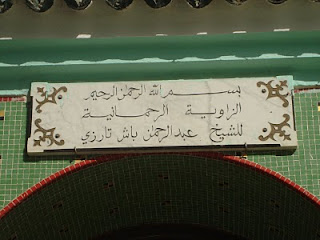 بسم الله الرحمن الرحيم
الزاوية الرحمانية
للشيخ عبدالرحمن باش تارزي